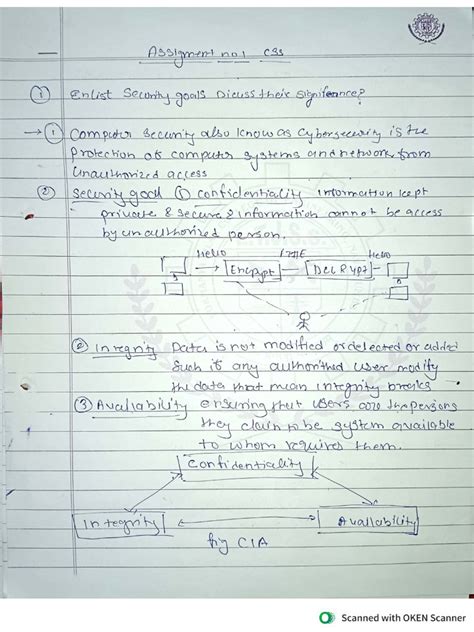 Assigment no.1 CSS
① Enlist Security goals Dicuss their significance?
→ ① Computer Security also know as Cybersecurity is the
Protection of computer systems and network from
Unauthorized access
② Security goal ① Confidentiality information kept
private & secure & information cannot be access
by unauthorized person.
Hello Hello
Encrypt Decrypt
② Integrity Data is not modified or delected or added
Such if any authorithed user modify
the data that mean integrity breaks
③ Availability ensuring that users are the persons
they claim to be system available
to whom requires them.
Confidentiality
Integrity Availability
fig CIA
Scanned with OKEN Scanner